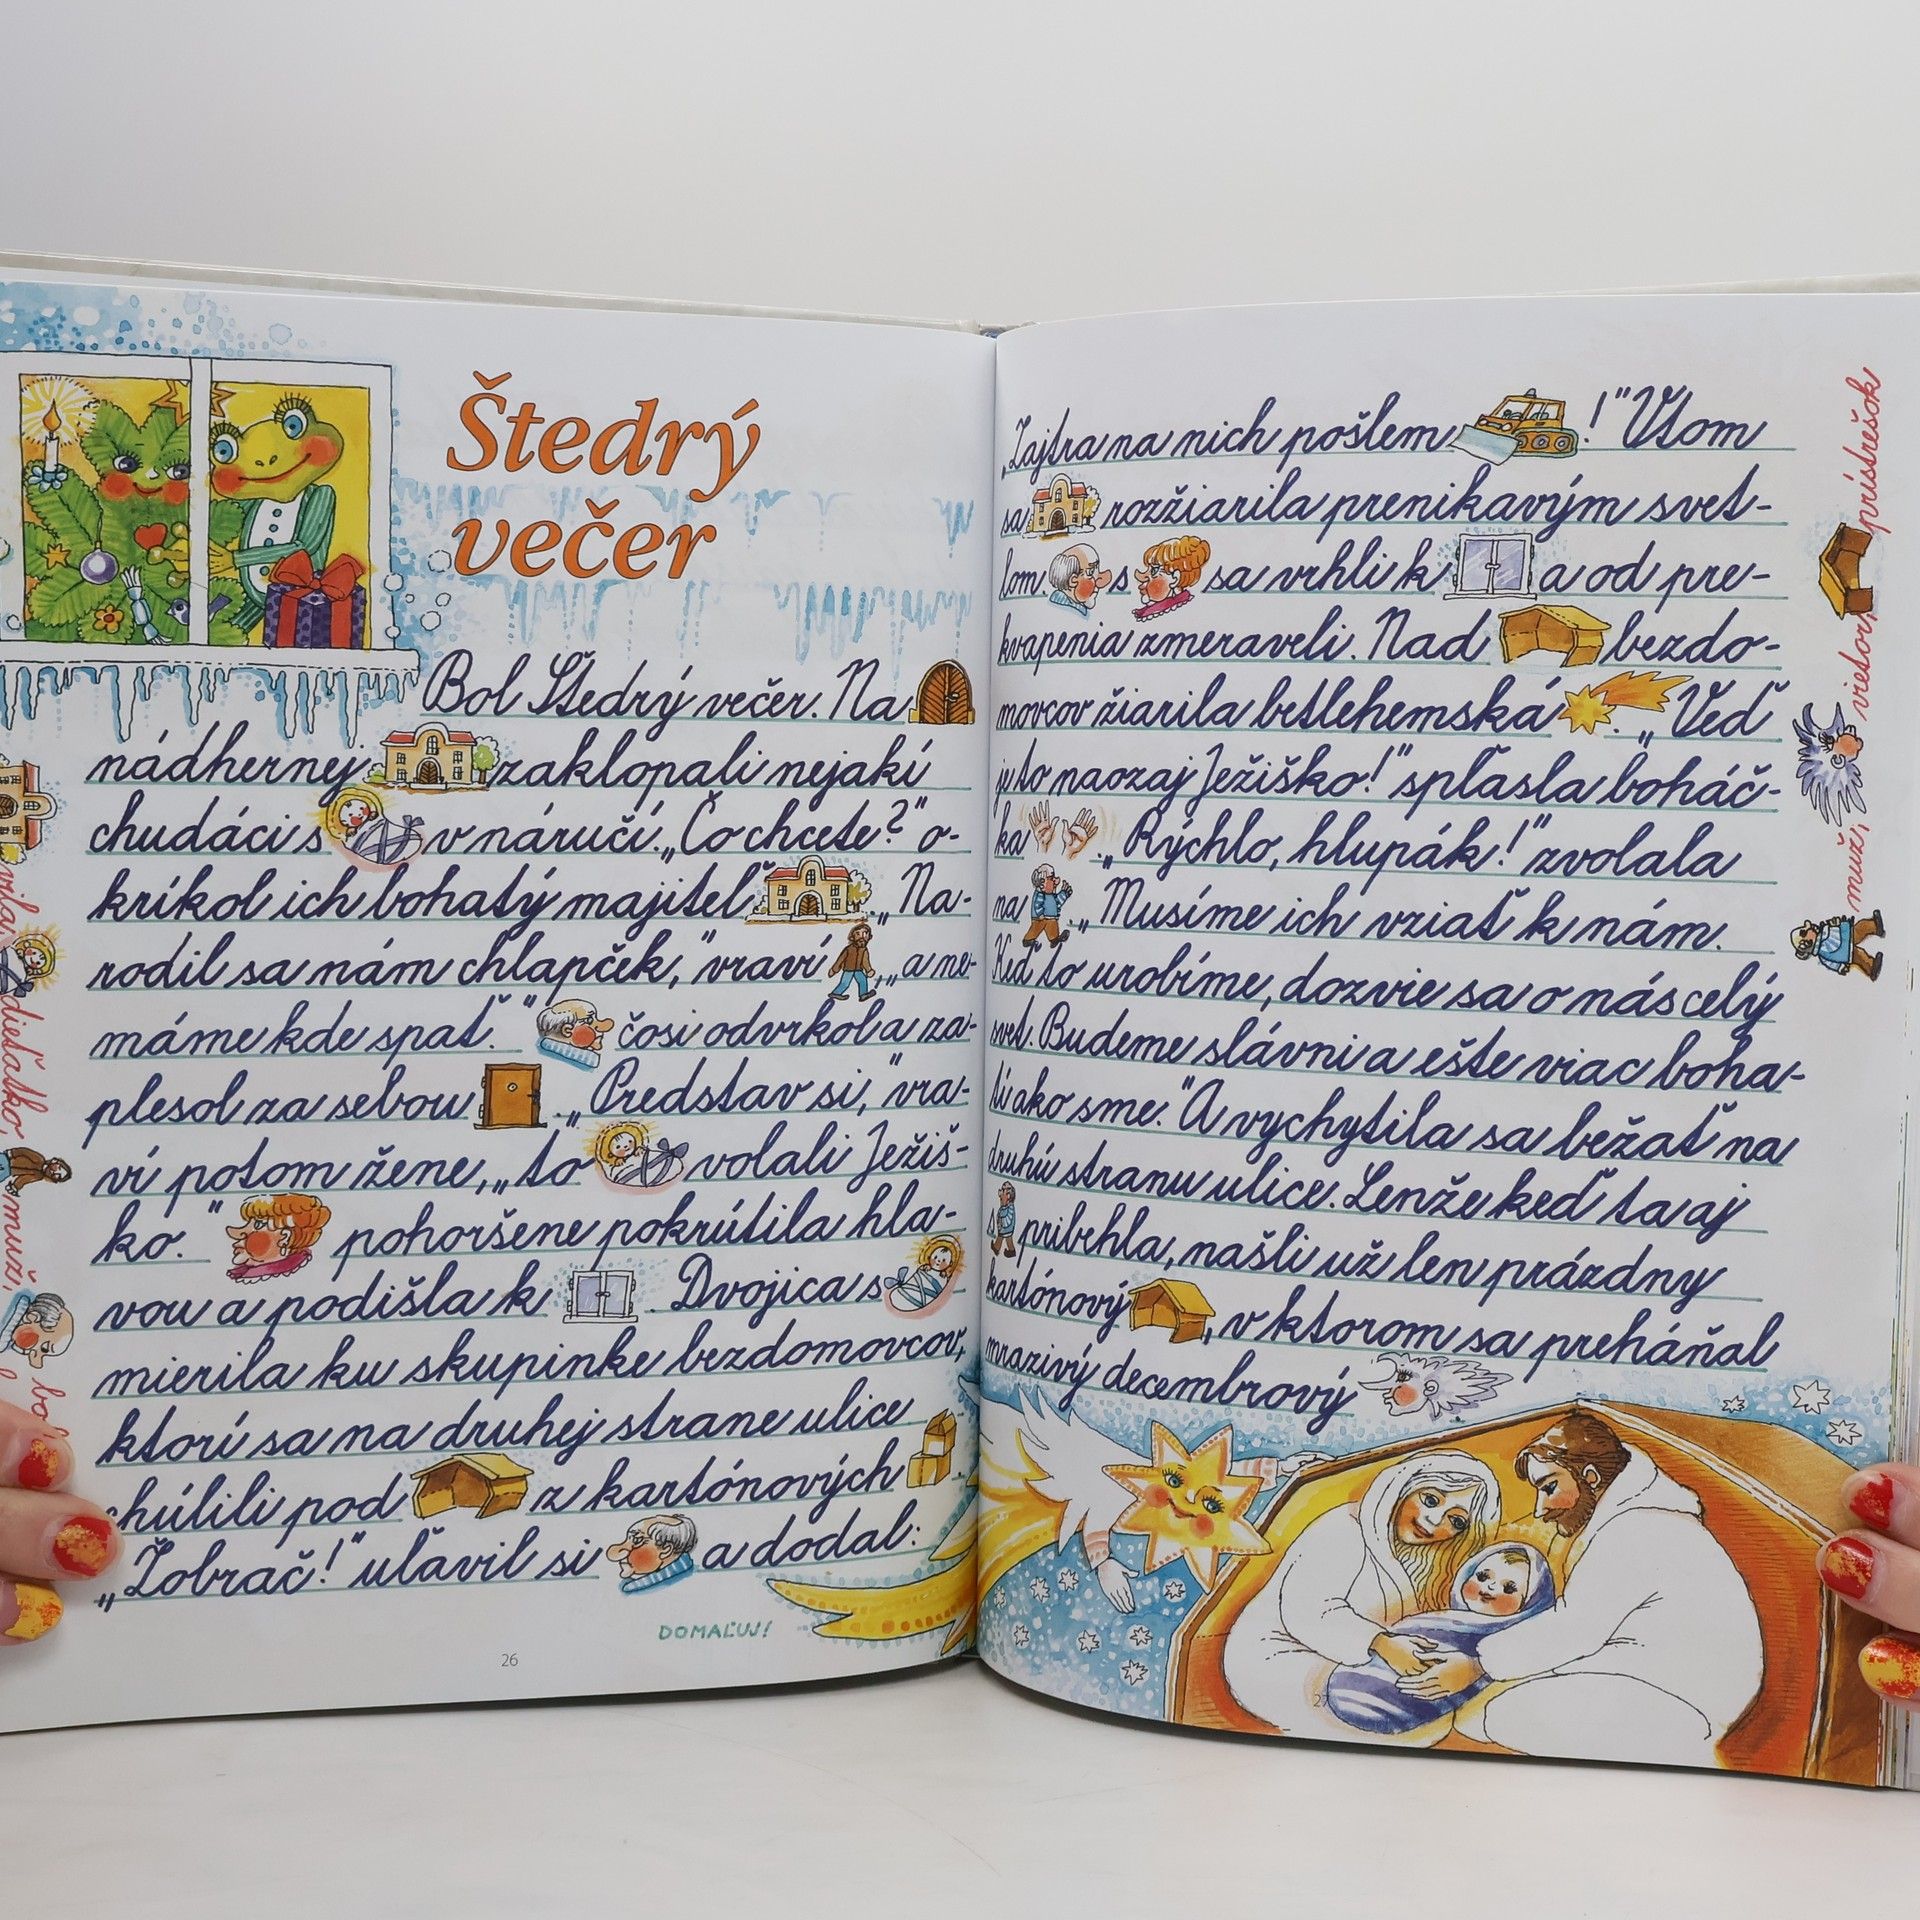 Štedrý
večer
Bol Štedrý večer. Na
nádhernej zaklopali nejakí
chudáci s v náručí. „Čo chcete?" o-
kríkol ich bohatý majiteľ . „Na-
rodil sa nám chlapček," vraví , „a ne-
máme kde spať." čosi odvrkol a za-
plesol za sebou . „Predstav si," vra-
ví potom žene, „to volali Ježiš-
ko." pohoršene pokrútila hla-
vou a podišla k . Dvojica s
mierila ku skupinke bezdomovcov,
ktorí sa na druhej strane ulice
chúlili pod z kartónových .
„Žobrač!" uľavil si a dodal:
DOMAĽUJ!
26
vila,
dieťatko,
muž,
„Zajtra na nich pošlem !" Vtom
sa rozžiarila prenikavým svet-
lom. s sa vrhli k a od pre-
kvapenia zmeraveli. Nad bezdo-
movcov žiarila betlehemská . „Veď
je to naozaj Ježiško!" spľasla boháč-
ka . „Rýchlo, hlupák!" zvolala
na . „Musíme ich vziať k nám.
Keď to urobíme, dozvie sa o nás celý
svet. Budeme slávni a ešte viac boha-
tí ako sme." A vychytila sa bežať na
druhú stranu ulice. Lenže keď ta aj
s pribehla, našli už len prázdny
kartónový , v ktorom sa preháňal
mrazivý decembrový .
prístrešok
vietor,
muž,
27